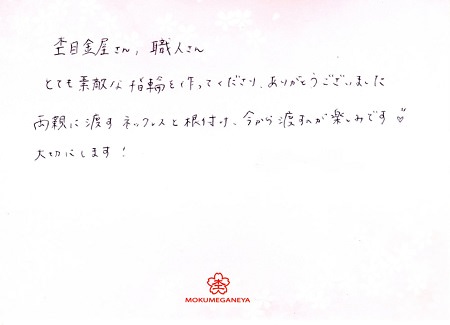 杢目金屋さん，職人さん
とても素敵な指輪を作ってくださり、ありがとうございました
両親に渡すネックレスと根付け、今から渡すのが楽しみです
大切にします！
杢
MOKUMEGANEYA